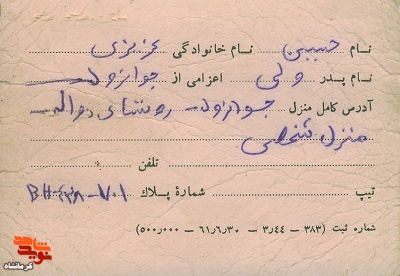 نام حبیبی نام خانوادگی عزیزی
نام پدر ولی اعزامی از جوانرود
آدرس کامل منزل جوانرود - روستای
منزل شخصی
تلفن
تیپ BH-۳۸-۷۰۱ شمارهٔ پلاک
شماره ثبت (۳۸۳ – ۳٫۴۴ – ۶۱٫۶٫۳۰ – ۵۰۰٫۰۰۰)
نوید شاهد
کرمانشاه